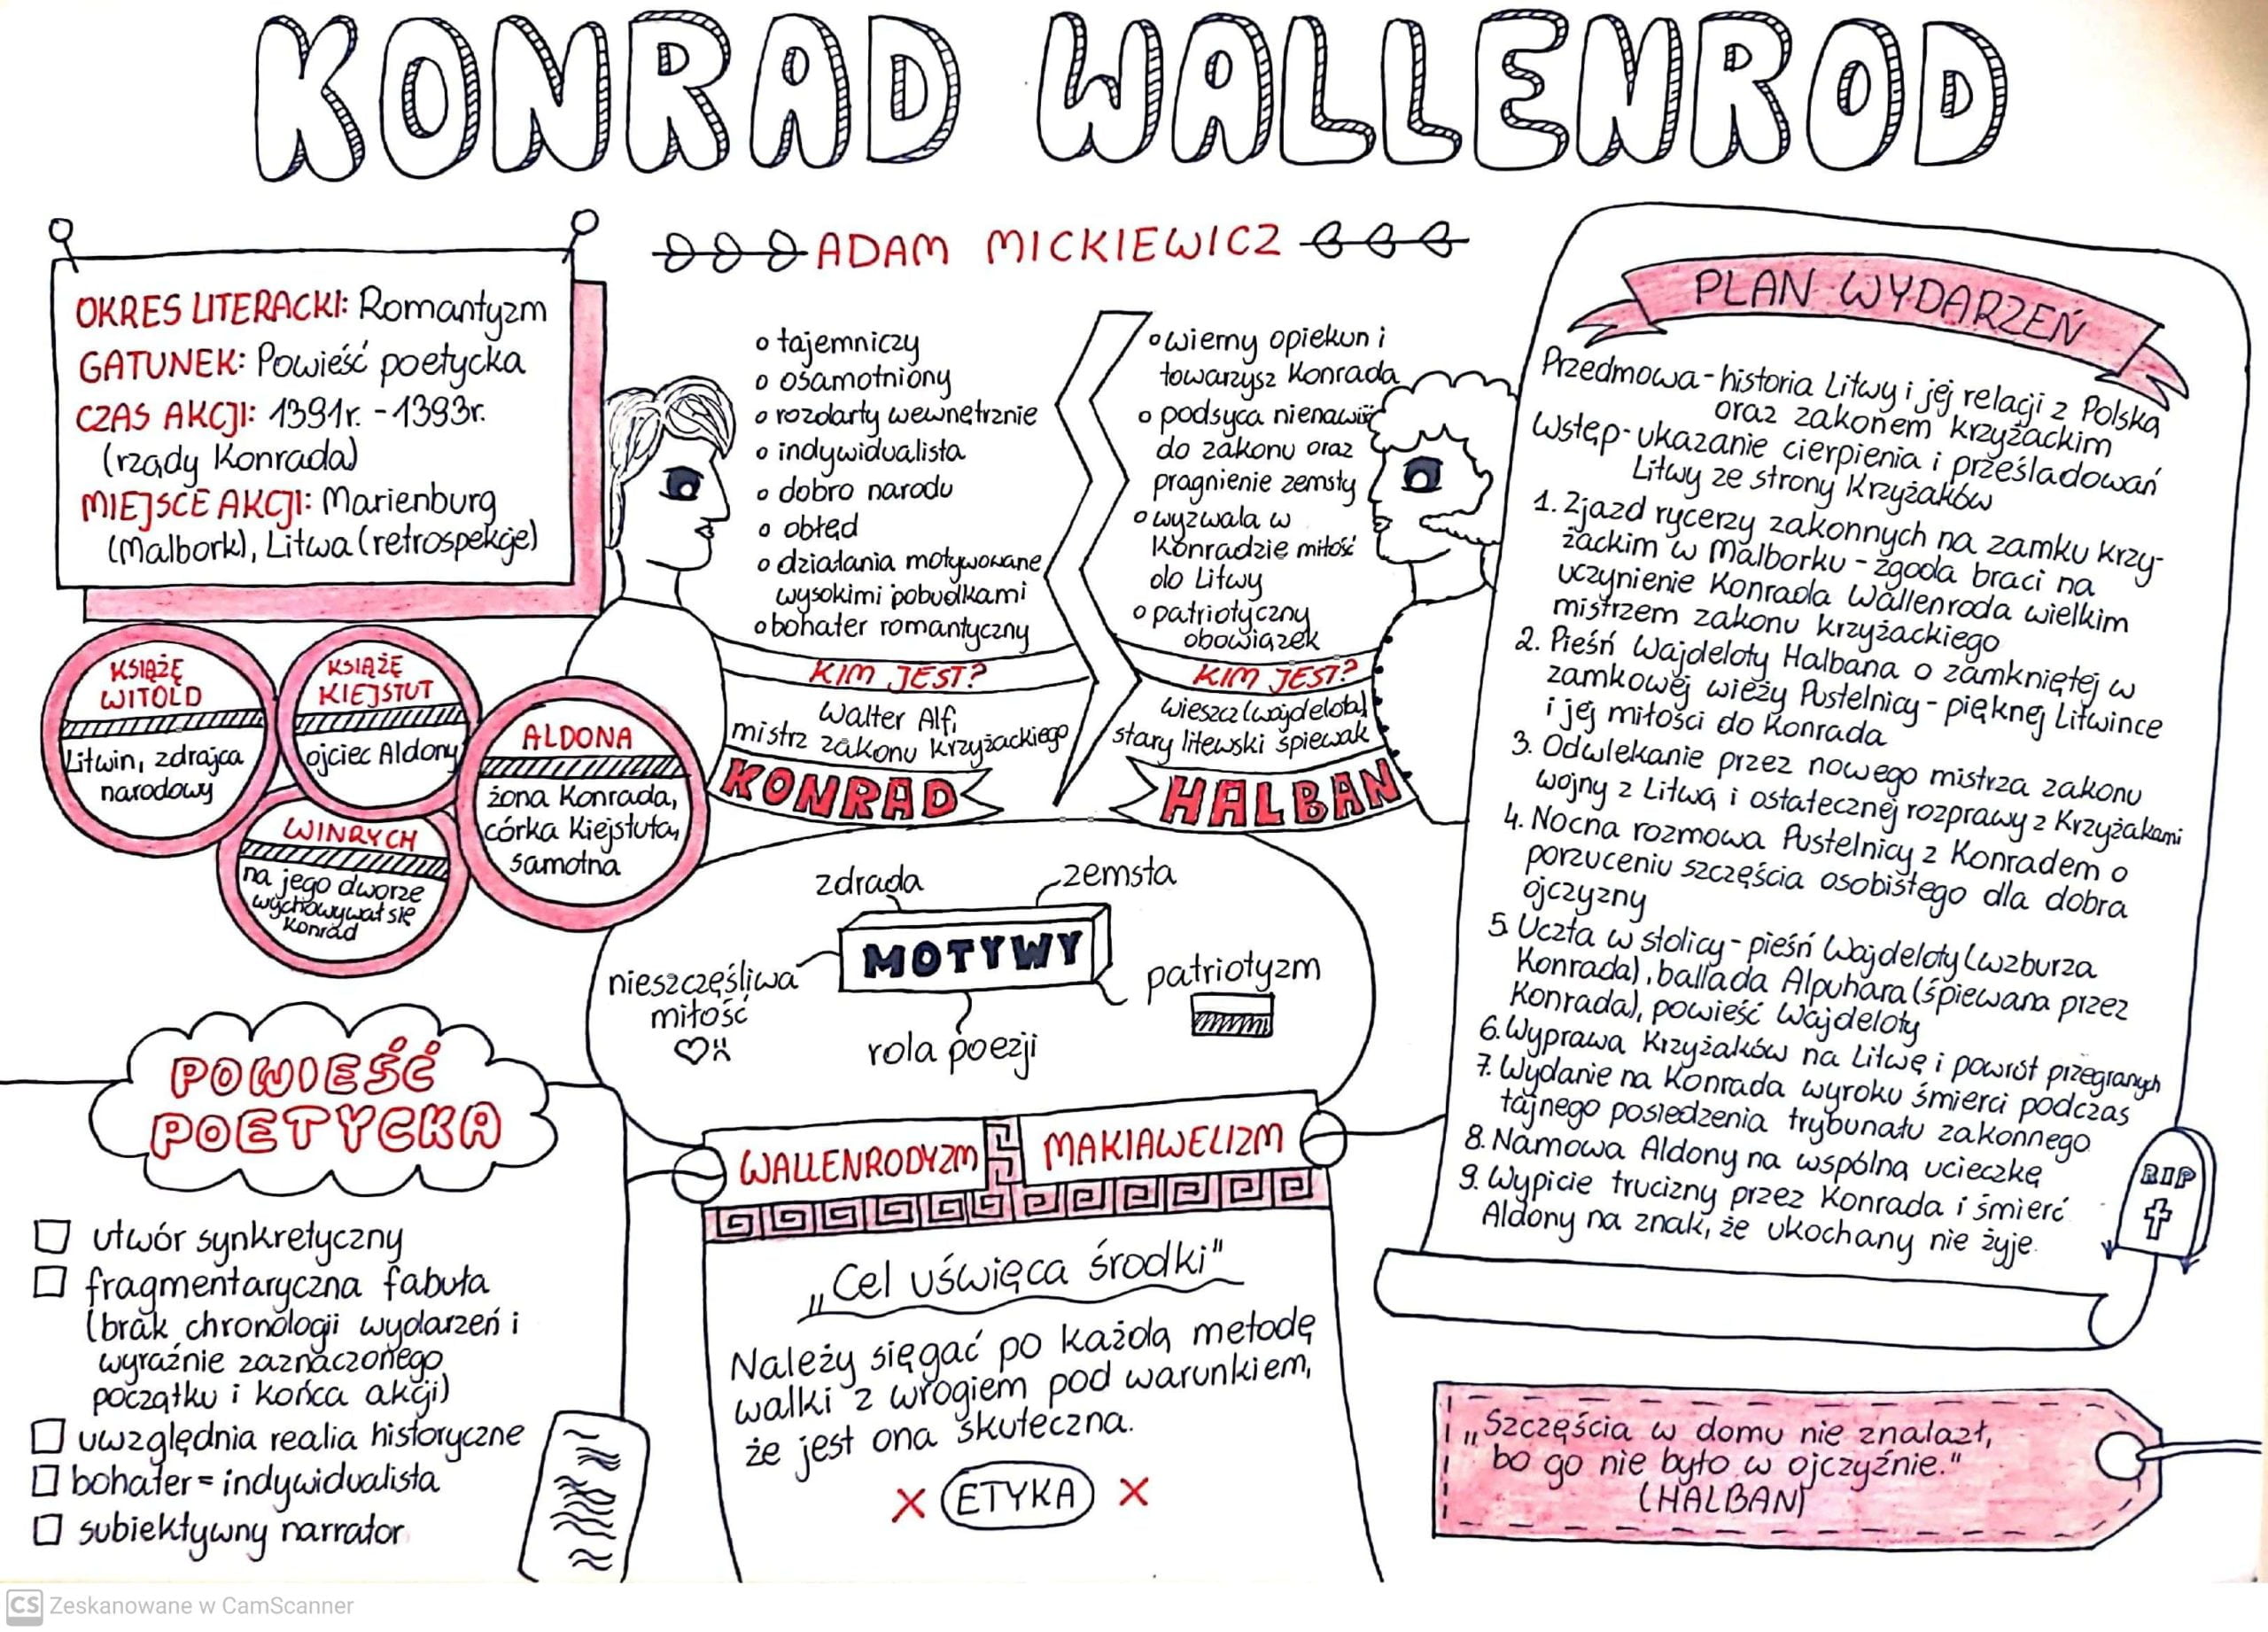 KONRAD WALLENROD
ADAM MICKIEWICZ
OKRES LITERACKI: Romantyzm
GATUNEK: Powieść poetycka
CZAS AKCJI: 1391r. - 1393r.
(rządy Konrada)
MIEJSCE AKCJI: Marienburg
(Malbork), Litwa (retrospekcje)
KSIĄŻĘ
WITOLD
Litwin, zdrajca
narodowy
KSIĄŻĘ
KIEJSTUT
ojciec Aldony
WINRYCH
na jego dworze
wychowywał się
Konrad
ALDONA
żona Konrada,
córka Kiejstuta,
samotna
o tajemniczy
o osamotniony
o rozdarty wewnętrznie
o indywidualista
o dobro narodu
o obłęd
o działania motywowane
wysokimi pobudkami
o bohater romantyczny
KIM JEST?
Walter Alf,
mistrz zakonu krzyżackiego
KONRAD
o wierny opiekun i
towarzysz Konrada
o podsyca nienawiść
do zakonu oraz
pragnienie zemsty
o wyzwala w
Konradzie miłość
do Litwy
o patriotyczny
obowiązek
KIM JEST?
wieszcz (wajdelota)
stary litewski śpiewak
HALBAN
MOTYWY
zdrada
zemsta
nieszczęśliwa
miłość
rola poezji
patriotyzm
POWIEŚĆ
POETYCKA
utwór synkretyczny
fragmentaryczna fabuła
(brak chronologii wydarzeń i
wyraźnie zaznaczonego
początku i końca akcji)
uwzględnia realia historyczne
bohater = indywidualista
subiektywny narrator
WALLENRODYZM
MAKIAWELIZM
„Cel uświęca środki"
Należy sięgać po każdą metodę
walki z wrogiem pod warunkiem,
że jest ona skuteczna.
X ETYKA X
PLAN WYDARZEŃ
Przedmowa - historia Litwy i jej relacji z Polską
oraz zakonem krzyżackim
Wstęp - ukazanie cierpienia i prześladowań
Litwy ze strony Krzyżaków
1. Zjazd rycerzy zakonnych na zamku krzy-
żackim w Malborku - zgoda braci na
uczynienie Konrada Wallenroda wielkim
mistrzem zakonu krzyżackiego
2. Pieśń Wajdeloty Halbana o zamkniętej w
zamkowej wieży Pustelnicy - pięknej Litwince
i jej miłości do Konrada
3. Odwlekanie przez nowego mistrza zakonu
wojny z Litwą i ostatecznej rozprawy z Krzyżakami
4. Nocna rozmowa Pustelnicy z Konradem o
porzuceniu szczęścia osobistego dla dobra
ojczyzny
5. Uczta w stolicy - pieśń Wajdeloty (wzburza
Konrada), ballada Alpuhara (śpiewana przez
Konrada), powieść Wajdeloty
6. Wyprawa Krzyżaków na Litwę i powrót przegranych
7. Wydanie na Konrada wyroku śmierci podczas
tajnego posiedzenia trybunału zakonnego
8. Namowa Aldony na wspólną ucieczkę
9. Wypicie trucizny przez Konrada i śmierć
Aldony na znak, że ukochany nie żyje.
RIP
„Szczęścia w domu nie znalazł,
bo go nie było w ojczyźnie."
(HALBAN)
CS Zeskanowane w CamScanner